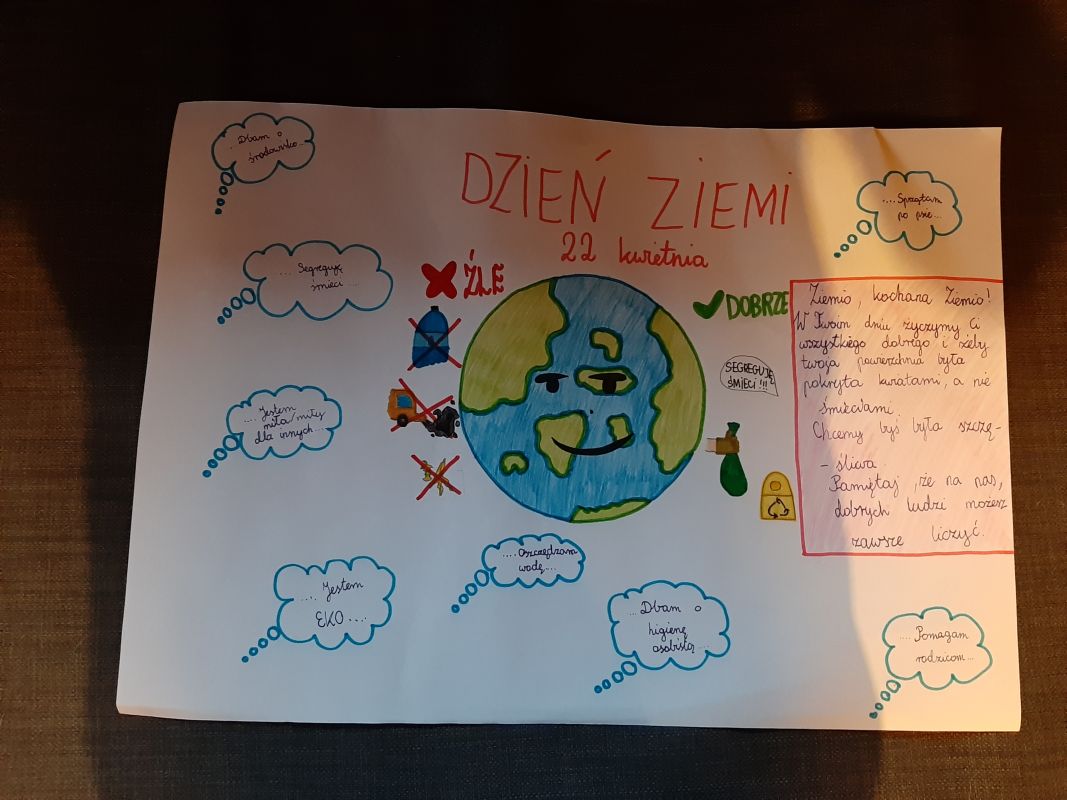 DZIEŃ ZIEMI
22 kwietnia
... Dbam o
środowisko...
.... Sprzątam
po psie...
.... Segreguję
śmieci ....
ŹLE
DOBRZE
SEGREGUJĘ
ŚMIECI !!!
Ziemio, kochana Ziemio!
W Twoim dniu życzymy Ci
wszystkiego dobrego i żeby
twoja powierzchnia była
pokryta kwiatami, a nie
śmieciami.
Chcemy byś była szczę-
- śliwa.
Pamiętaj, że na nas,
dobrych ludzi możesz
zawsze liczyć.
.... Jestem
miła/miły
dla innych...
.... Oszczędzam
wodę....
.... Jestem
EKO ....
... Dbam o
higienę
osobistą ...
.... Pomagam
rodzicom...